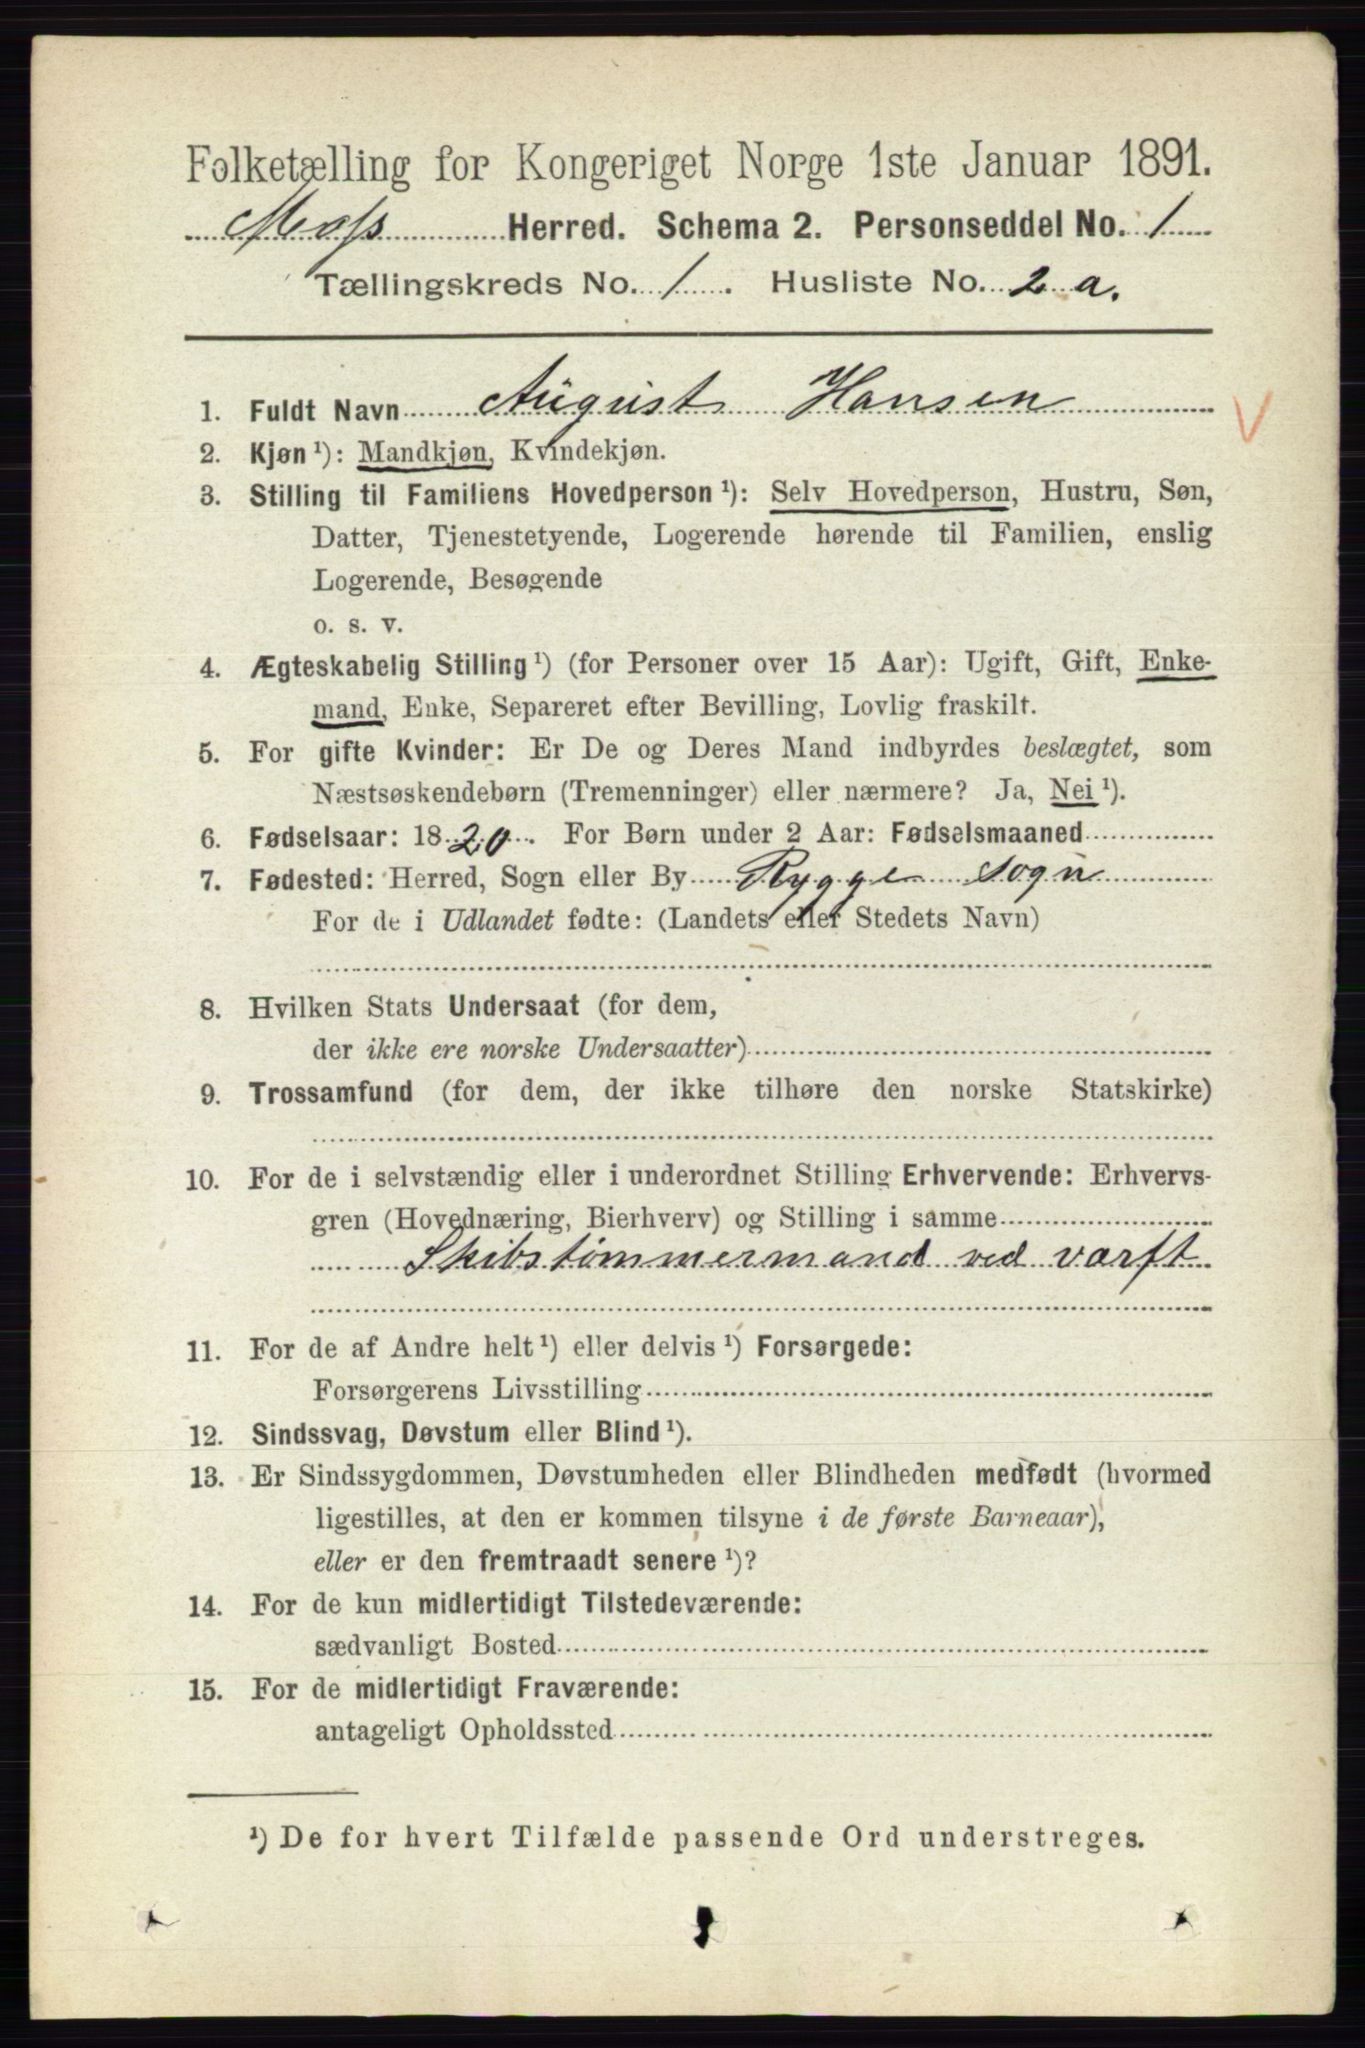 Folketælling for Kongeriget Norge 1ste Januar 1891.
Moss Herred. Schema 2. Personseddel No. 1
Tællingskreds No. 1. Husliste No. 2 a.
1. Fuldt Navn August Hansen
2. Kjøn ¹): Mandkjøn, Kvindekjøn.
3. Stilling til Familiens Hovedperson ¹): Selv Hovedperson, Hustru, Søn,
Datter, Tjenestetyende, Logerende hørende til Familien, enslig
Logerende, Besøgende
o. s. v.
4. Ægteskabelig Stilling ¹) (for Personer over 15 Aar): Ugift, Gift, Enke-
mand, Enke, Separeret efter Bevilling, Lovlig fraskilt.
5. For gifte Kvinder: Er De og Deres Mand indbyrdes beslægtet, som
Næstsøskendebørn (Tremenninger) eller nærmere? Ja, Nei ¹).
6. Fødselsaar: 1820. For Børn under 2 Aar: Fødselsmaaned
7. Fødested: Herred, Sogn eller By Rygge Sogn
For de i Udlandet fødte: (Landets eller Stedets Navn)
8. Hvilken Stats Undersaat (for dem,
der ikke ere norske Undersaatter)
9. Trossamfund (for dem, der ikke tilhøre den norske Statskirke)
10. For de i selvstændig eller i underordnet Stilling Erhvervende: Erhvervs-
gren (Hovednæring, Bierhverv) og Stilling i samme
Skibstømmermand ved værft
11. For de af Andre helt ¹) eller delvis ¹) Forsørgede:
Forsørgerens Livsstilling
12. Sindssvag, Døvstum eller Blind ¹).
13. Er Sindssygdommen, Døvstumheden eller Blindheden medfødt (hvormed
ligestilles, at den er kommen tilsyne i de første Barneaar),
eller er den fremtraadt senere ¹)?
14. For de kun midlertidigt Tilstedeværende:
sædvanligt Bosted
15. For de midlertidigt Fraværende:
antageligt Opholdssted
¹) De for hvert Tilfælde passende Ord understreges.